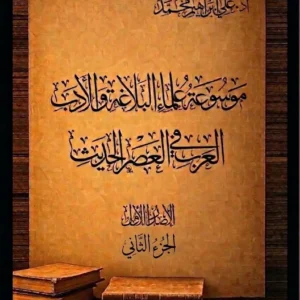 أ.د. علي إبراهيم محمد
موسوعة علماء البلاغة والأدب
العرب في العصر الحديث
الإصدار الأول
الجزء الثاني